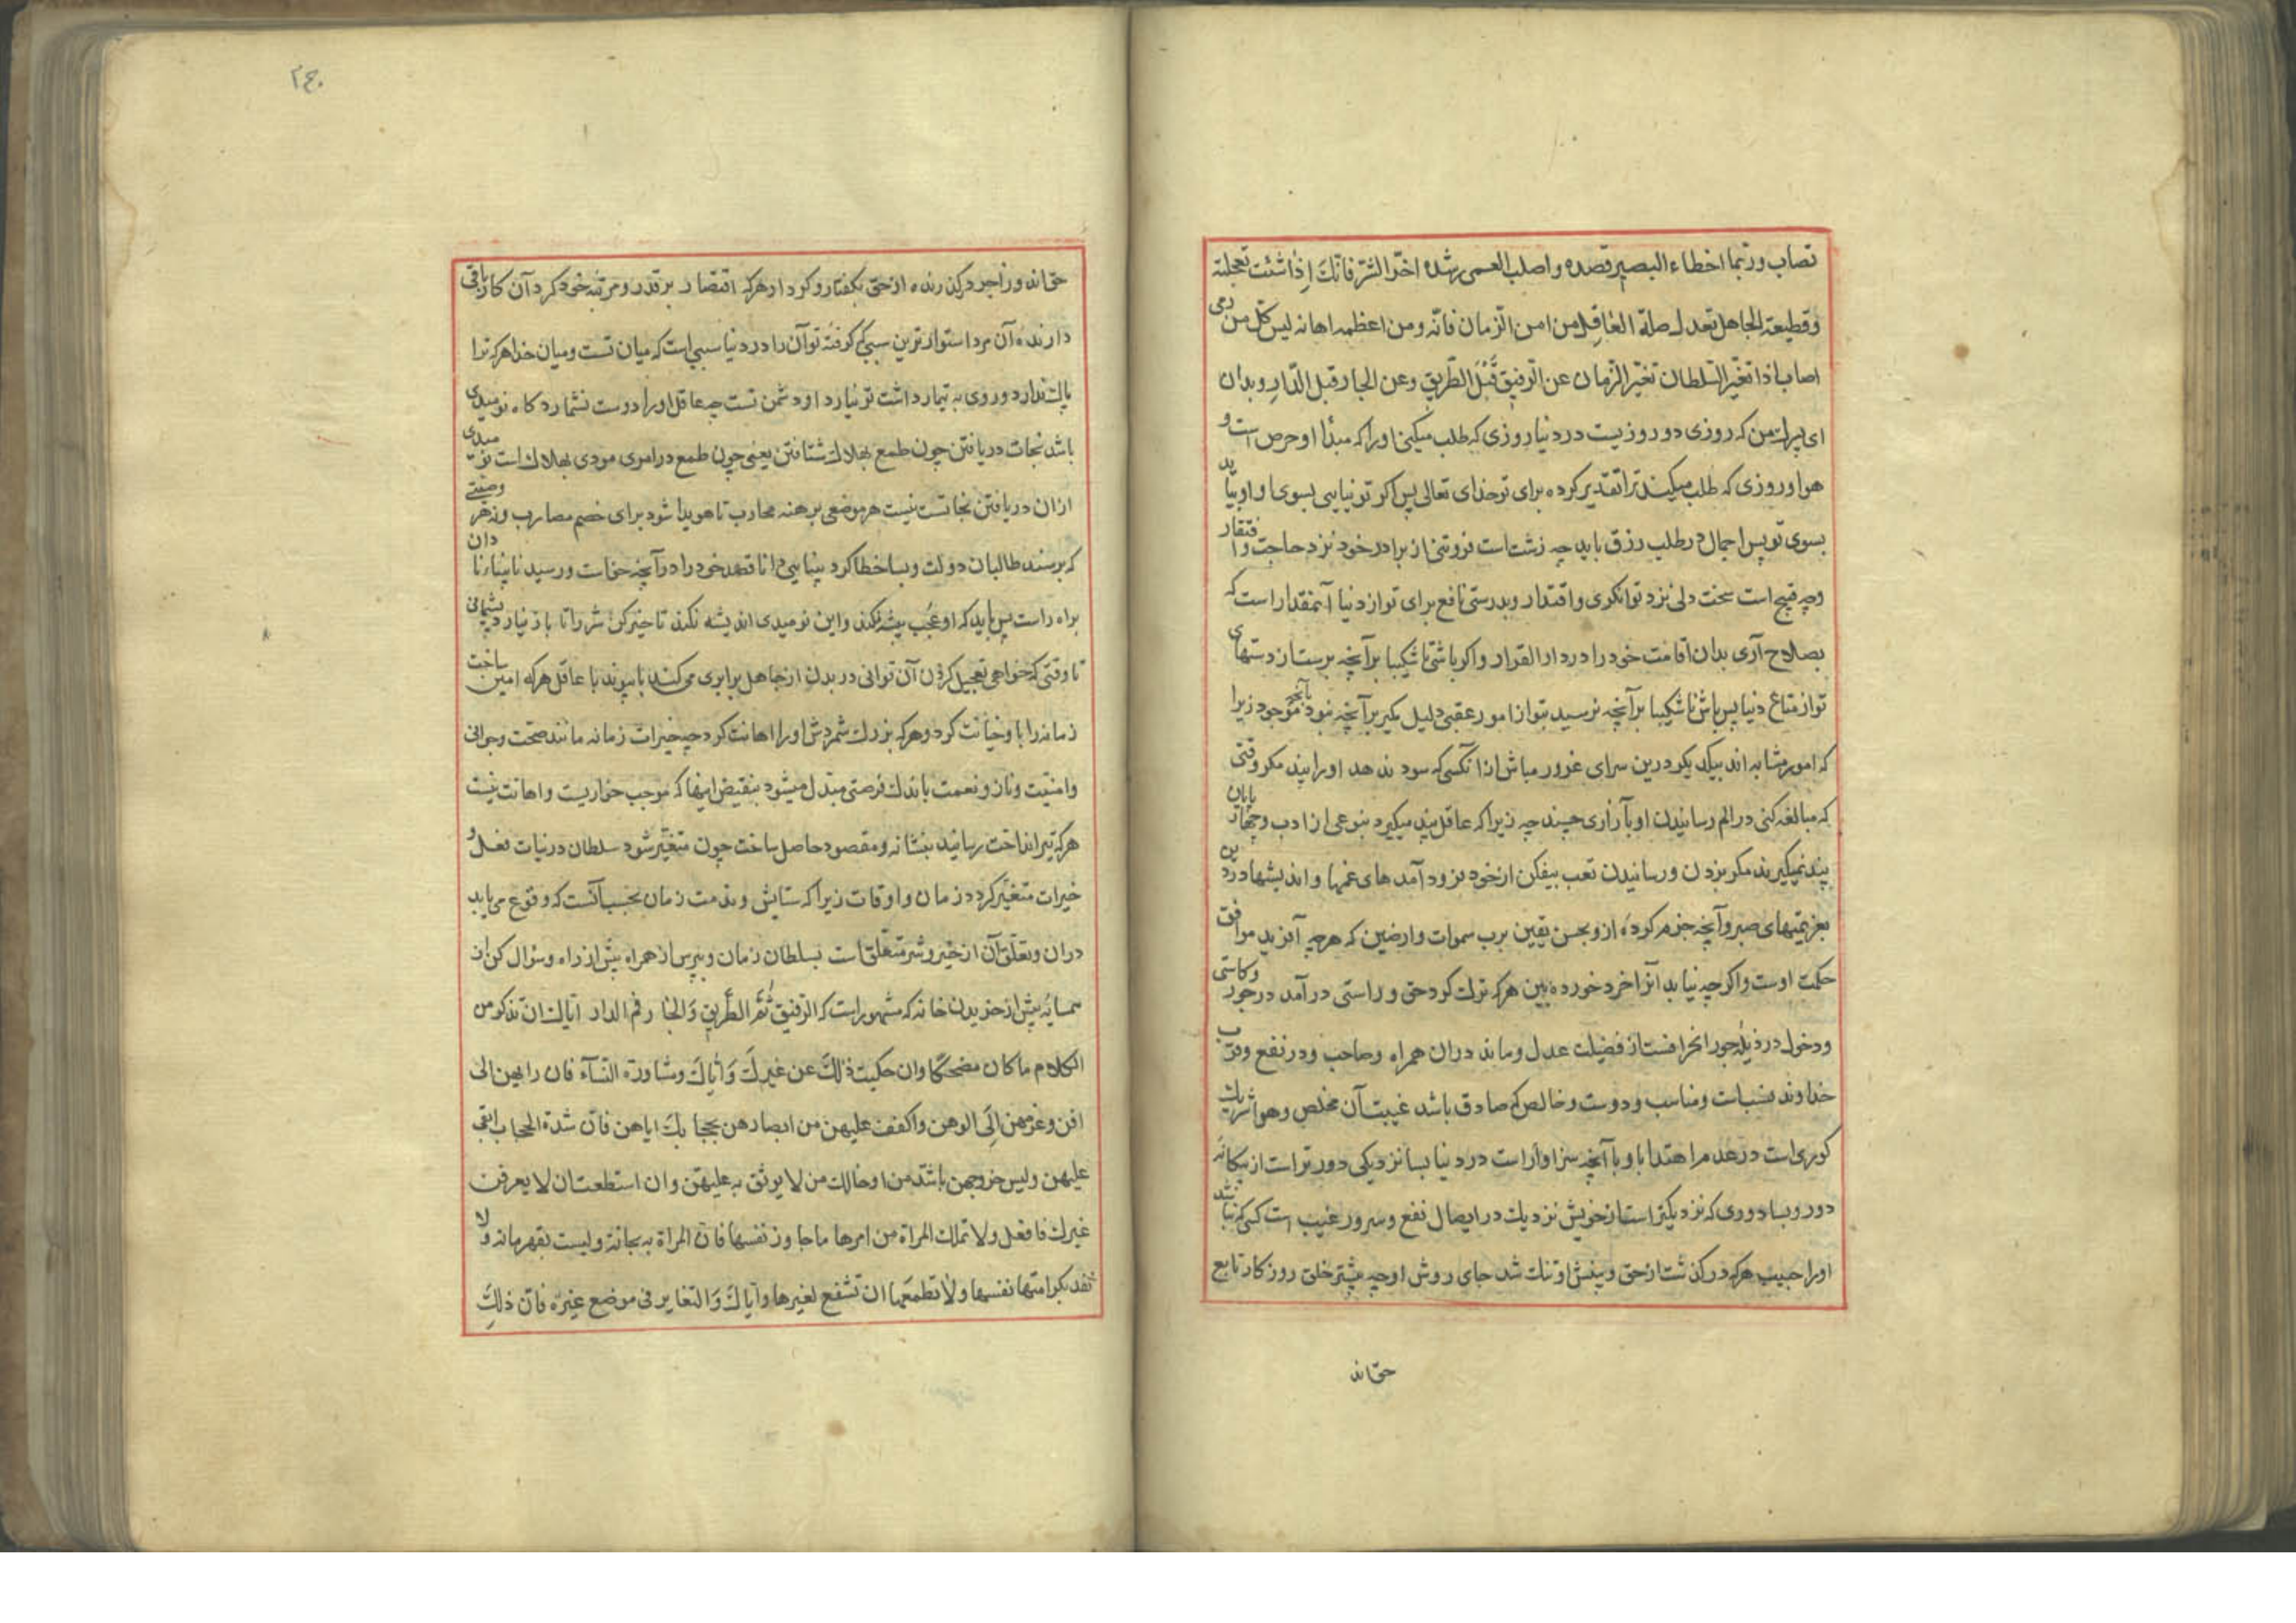 تصاب وربّما اخطاء البصیر قصده واصلب العمی رشده اخّر الشرّ فانّک اِذا شئت تعجلته
وقطیعة الجاهل تعدل صلة العاقل من امن الزّمان خانه ومن اعظمه اهانه لیس کل من رمی
اصاب اذا تغیّر السّلطان تغیّر الزمان عن الرفیق قَبْلَ الطّریق وعن الجار قبل الدّار وبدان
ای پسرک من که روزی دو روزیست در دنیا روزی که طلب میکنی او را که مبدأ او حرص است و
هوا و روزی که طلب میکند ترا تقدیر کرده برای تو خدای تعالی پس اکر تو نیایی بسوی او او بیاید
بسوی تو پس اجمال در طلب رزق باید چه زشت است فروتنی از برادر خود نزد حاجت وافتقار
وچه قبیح است سخت دلی نزد توانکری واقتدار وبدرستی نافع برای تو از دنیا آنمقدار است که
بصلاح آری بدان اقامت خود را در دار القرار واکر باشی ناشکیبا برآنچه برست از دستهای
تو از متاع دنیا پس باش ناشکیبا برآنچه نرسید بتو از امور عقبی دلیل بکیر برآنچه نبود بآنچه موجود زیرا
که امور مشابه اند بیکدیکر درین سرای غرور مباش از آنکسی که سود ندهد او را پند مکر وقتی
که مبالغه کنی در الم رسانیدن او بآزاری چند چه زیرا که عاقل پند میکیرد بنوعی از ادب وچهارپایان
پند نمیکیرند مکر بزدن ورسانیدن تعب بیفکن از خود بزود آمدهای غمها واندیشها درد ین
بعزیمتهای صبر وآنچه جزم کرده از و بحسن یقین برب سموات وارضین که هرچه آفرید موافق
حکمت اوست واکرچه نیابد آنرا خرد خورده بین هرکه ترک کرد حق وراستی درآمد در جور وکاستی
ودخول در رذیله جور انحرافست از فضیلت عدل وماند دران همراه وصاحب ودر نفع وقرب
خداوند نسبات ومناسب ودوست وخالص که صادق باشد غیبت آن مخلص وهوا شریک
کوری است در عدم اهتدا باو با آنچه سزاوار است در دنیا بسا نزدیکی دورتر است از بیکانه
دور وبسا دوری که نزدیکتر است از خویش نزدیک در ایصال نفع وسرور غریب است کسی که نباشد
او را حبیب هرکه درکذشت از حق وبینش او تنک شد جای روش او چه بیشتر خلق روزکار تابع
حق اند
حق اند وزاجر درکذرنده از حق بکفتار وکردار هرکه اقتصار بر قدر ومرتبه خود کرد آن کار باقی
دارنده آن مرد استوارترین سببی که کرفته تو آن را در دنیا سببی است که میان تست ومیان خدا هرکه ترا
باک ندارد وروی به تیمار داشت تو نیارد او دشمن تست چه عاقل او را دوست نشمارد کاه نومیدی
باشد نجات دریافتن چون طمع بهلاک شتافتن یعنی چون طمع در اموری مودی بهلاک است نومیدی
ازان دریافتن نجاتست نیست هر موضعی برهنه محارب تا هویدا شود برای خصم مضارب ونه هر فرصتی
که برسند طالبان دولت وبسا خطا کرد بینایی دانا قصد خود را در آنچه حق است ورسید نابینا نادان
براه راست پس باید که او عُجب پیشه نکند واین نومیدی اندیشه نکند تاخیر کن شر را تا باز نیارد پشیمانی
تا وقتی که خواهی تعجیل کردن آن توانی در بدن از جاهل برابری می کند با پیوند با عاقل هرکه امین ساخت
زمانه را با وخیانت کرد وهرکه بزرک شمردش او را اهانت کرد چه خیرات زمانه مانند صحت وجوانی
وامنیّت وناز ونعمت باندک فرصتی مبدّل میشود بنقیض اینها که موجب خواریست واهانت نیست
هرکه تیر انداخت رسانید بنشانه ومقصود حاصل ساخت چون متغیّر شود سلطان در نیات فعل و
خیرات متغیّر کردد زمان واوقات زیرا که ستایش ومذمت زمان بحسب آنست که وقوع می یابد
دران وتعلّق آن از خیر وشر متعلّق است بسلطان زمان وبپرس از همراه پیش از راه وسؤال کن از
همسایه پیش از خریدن خانه که مشهور است که الرّفیق ثُمَّ الطَّریق وَالجار ثم الدار ایّاک ان تذکر من
الکلام ما کان مضحکًا وان حکیت ذٰلکَ عن غیرکَ وَایّاکَ ومشاورة النّسآء فان رایهن الی
افن وعزمهن اِلَی الوهن واکفف علیهن من ابصارهن بحجابکَ ایاهن فانّ شدة الحجاب ابقی
علیهن ولیس خروجهن باشدّ من ادخالک من لا یوثق به علیهنّ وان استطعت ان لا یعرفن
غیرک فافعل ولا تملک المرأة من امرها ما جاوز نفسها فانّ المرأة ریحانة ولیست بقهرمانة ولا
تعد بکرامتها نفسها ولا تطمعها ان تشفع لغیرها وایّاکَ وَالتغایر فی موضع غیره فانّ ذلکَ